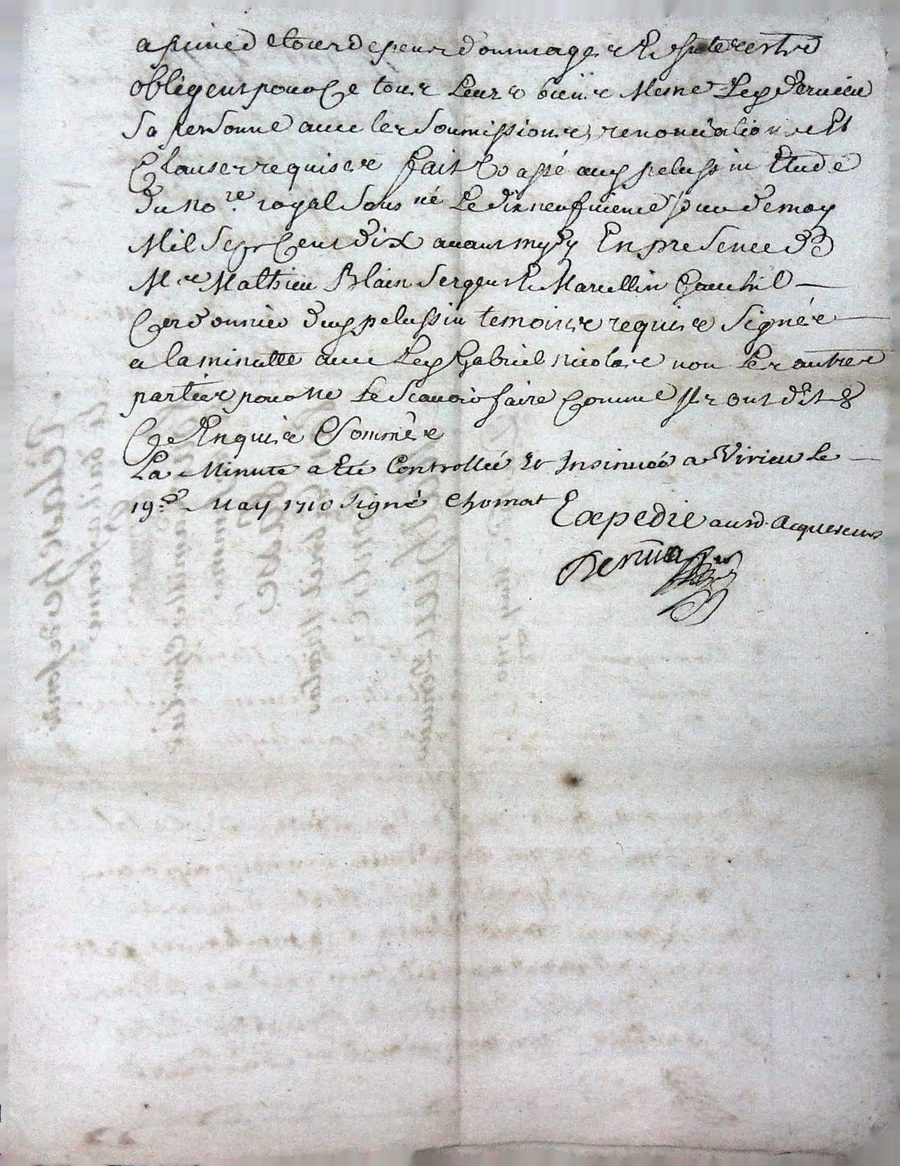 a peine de tous depens dommages & Interestz
obligeant pour Ce tous Leurs biens Mesme Led dervieu
Sa personne avec les Soumissions, renonciations Et
Clauses requises fait & passé aud pelussin Etude
du No.re royal Sous.né Le dixneufvieme Jour de may
Mil Sept Cent dix avant mydy En presence de
M.re Mathieu Blain Sergent & Marcellin Gauchil
Cordonnier dud pelussin temoins requis Signés
a la minutte avec Led Gabriel Nicolas non Les autres
parties pour Ne Le Scavoir faire Comme Ils ont dit &
Ce Enquis & Sommés
La Minute a Eté Controllée & Insinuée a Virieu le
19.e May 1710 Signé Chomat
Expedié aud. Acquereur